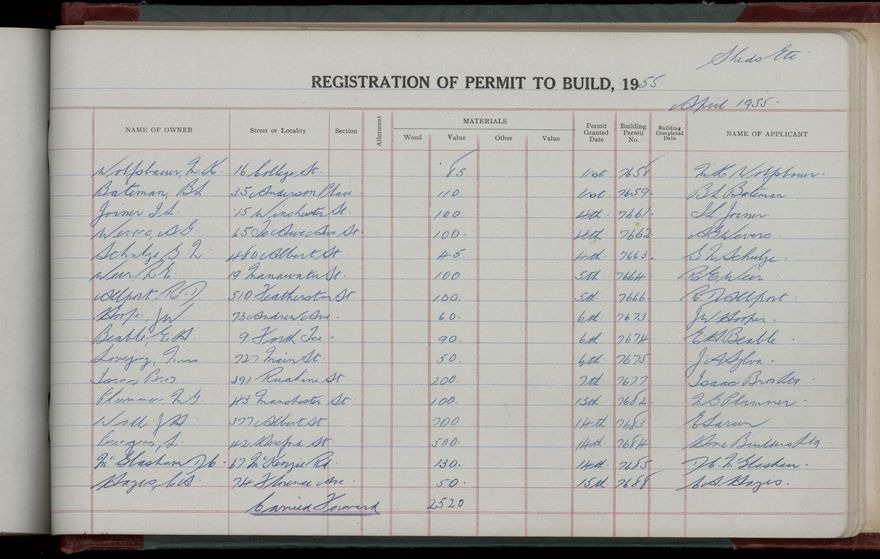 Sheds Etc
REGISTRATION OF PERMIT TO BUILD, 1955.
April 1955.
NAME OF OWNER Street or Locality Section Allotment MATERIALS Wood Value Other Value Permit Granted Date Building Permit No. Building Completed Date NAME OF APPLICANT
Wolfsbauer, 16 College St. 85 1st 7658 Wolfsbauer.
Bateman, B L 35 Anderson Place 110 1st 7659. B L Bateman
Joiner I L. 15 Winchester St. 100. 4th 7661. I L Joiner
Wevers, A G 65 Te Awe Awe St. 100. 4th 7662 A G Wevers
Schulze G 480 Albert St. 45. 4th 7663. Schulze.
Weir R E. 19 Manawatu St. 100 5th 7664 R E Weir
Allport, R. D. 510 Featherston St. 100. 5th 7666. Allport.
J W 73 Andrew Ave. 60. 6th 7673. J W Hooper.
Beable, E A 9 North Tce. 90. 6th 7674 E A Beable.
727 Main St. 50. 6th 7675 J A
Isaac Bros 391 Ruahine St 200. 7th 7677 Isaac Bros Ltd.
Plummer, N G. 43 Manchester St 100. 13th 7682. N G Plummer.
377 Albert St 700 14th 7683
42 St. 500. 14th 7684 Builders Ltd
McGlashan D C. 67 McKenzie Rd. 130. 14th 7685. D C McGlashan.
Hayes, C A. 74 Florence Ave. 50. 15th 7688 C A. Hayes.
Carried Forward 2520